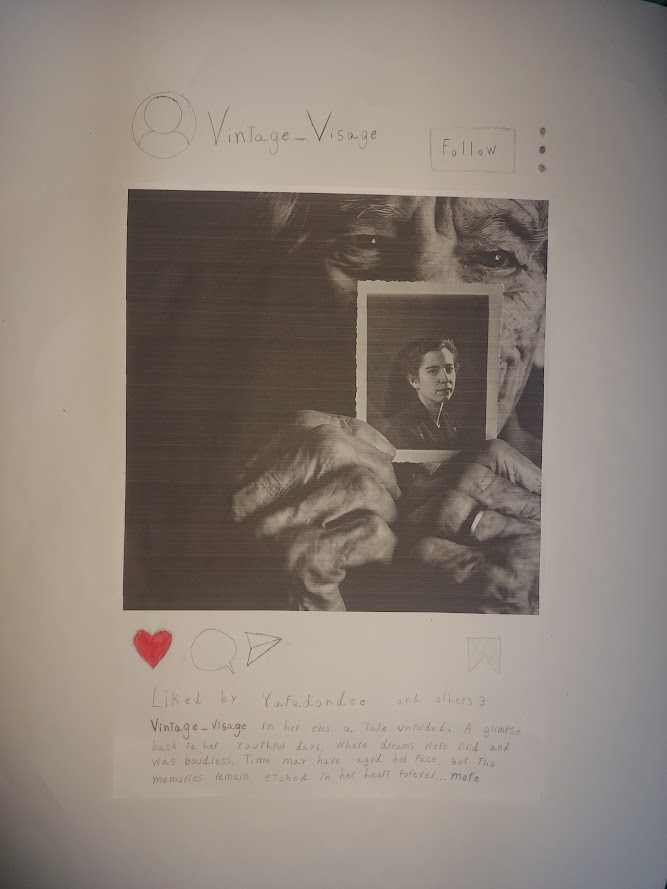 Vintage_Visage
Follow
Liked by Yafadondee and others 3
Vintage_Visage In her eyes a Tale unfolded. A glimpse
back to her youthful days, where dreams were vivid and
was boudless. Time may have aged her face, but The
memories remain etched in her heart forever... more